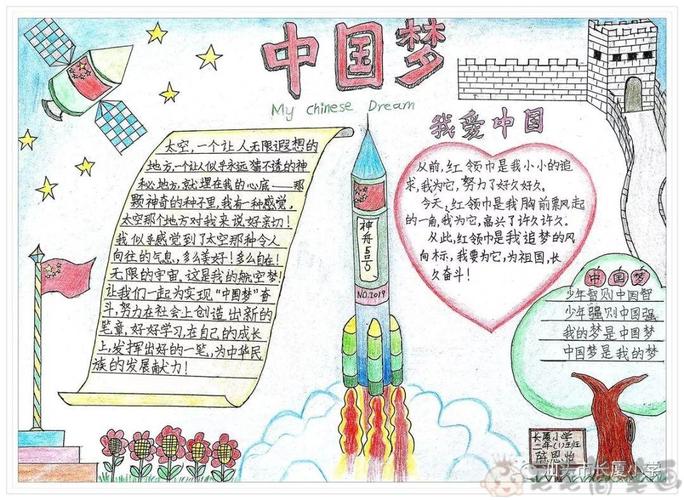 中国梦
My Chinese Dream
太空,一个让人无限遐想的
地方,一个让人似乎永远猜不透的神
秘地方,就埋在我的心底——那
颗神奇的种子里,我有一种感觉。
太空那个地方对我来说好亲切!
我似乎感觉到了太空那种令人
向往的气息,多么美好!多么自在!
无限的宇宙,这是我的航空梦!
让我们一起为实现“中国梦”奋
斗,努力在社会上创造出新的
笔章,好好学习,在自己的成长
上,发挥出好的一笔,为中华民
族的发展献力!
神舟5号
NO.2019
我爱中国
从前,红领巾是我小小的追
求,我为它,努力了好久好久。
今天,红领巾是我胸前飘起
的一角,我为它,高兴了许久许久。
从此,红领巾是我追梦的风
向标,我要为它,为祖国,长
久奋斗!
中国梦
少年智则中国智
少年强则中国强
我的梦是中国梦
中国梦是我的梦
长厦小学
二年(1)班
陈恩
汕头市长厦小学